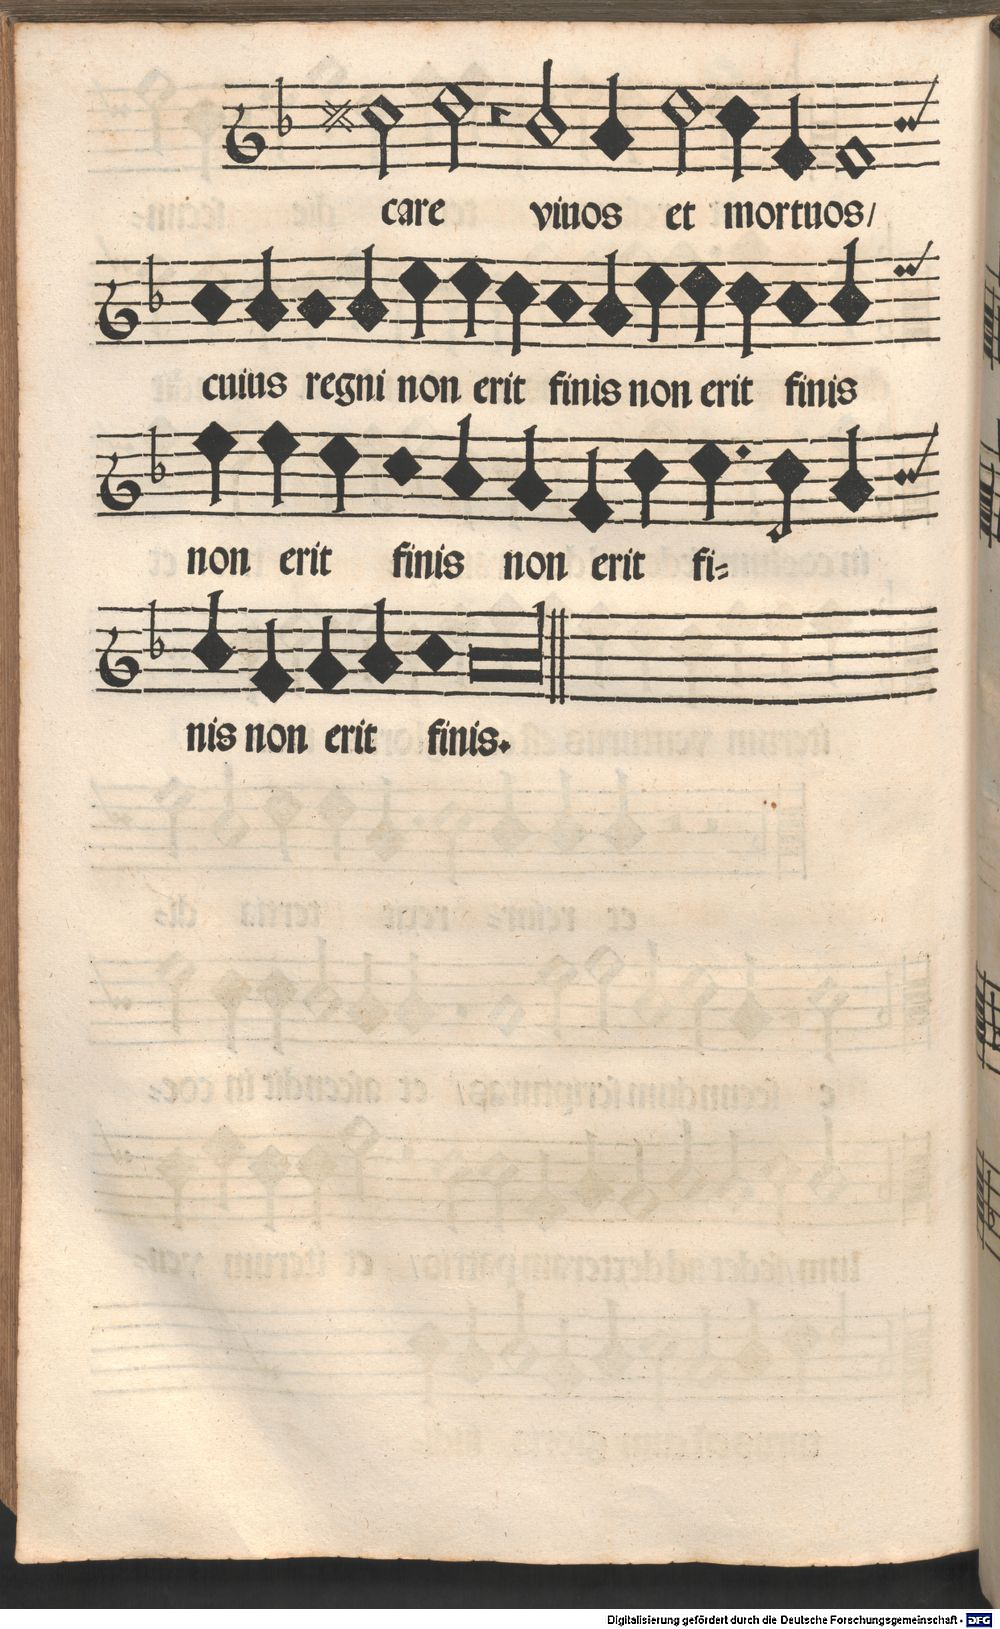 care viuos et mortuos/
cuius regni non erit finis non erit finis
non erit finis non erit fi=
nis non erit finis.
Digitalisierung gefördert durch die Deutsche Forschungsgemeinschaft - DFG